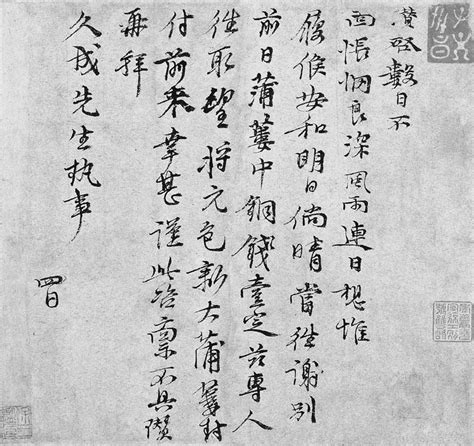 瓚啓數日不
面悵惘良深風雨連日想惟
履候安和明日倘晴當往謝別
前日蒲蔞中銅錢壹定茲專人
往取望將元包新大蒲蔞封
付前來幸甚謹此咨稟不具瓚
再拜
久成先生執事
四日